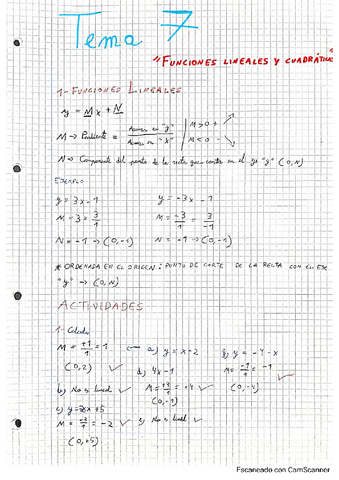 Tema 7
"FUNCIONES LINEALES Y CUADRÁTICAS"
1-FUNCIONES LINEALES
y = Mx + N
M → Pendiente = Avance en "y" / Avance en "x" | M > 0 + | M < 0 -
N → Componente del punto de la recta que corta en el eje "y" (0,N)
EJEMPLO
y = 3x - 1 y = -3x - 1
M = 3 = 3/1 M = -3/1 = 3/-1
N = -1 → (0,-1) N = -1 → (0,-1)
* ORDENADA EN EL ORIGEN: PUNTO DE CORTE DE LA RECTA CON EL EJE
"y" → (0,N)
ACTIVIDADES
1- Calcula
M = +1/1 = 1 a) y = x - 2 g) y = -4 - x
(0,2) d) 4x - 1 M = -1/1 = -1
b) No es lineal M = +4/1 = +4 (0,-4)
(0,-1)
c) y = -2x + 5
M = -2/1 = -2 e) No es lineal
(0,+5)
Escaneado con CamScanner